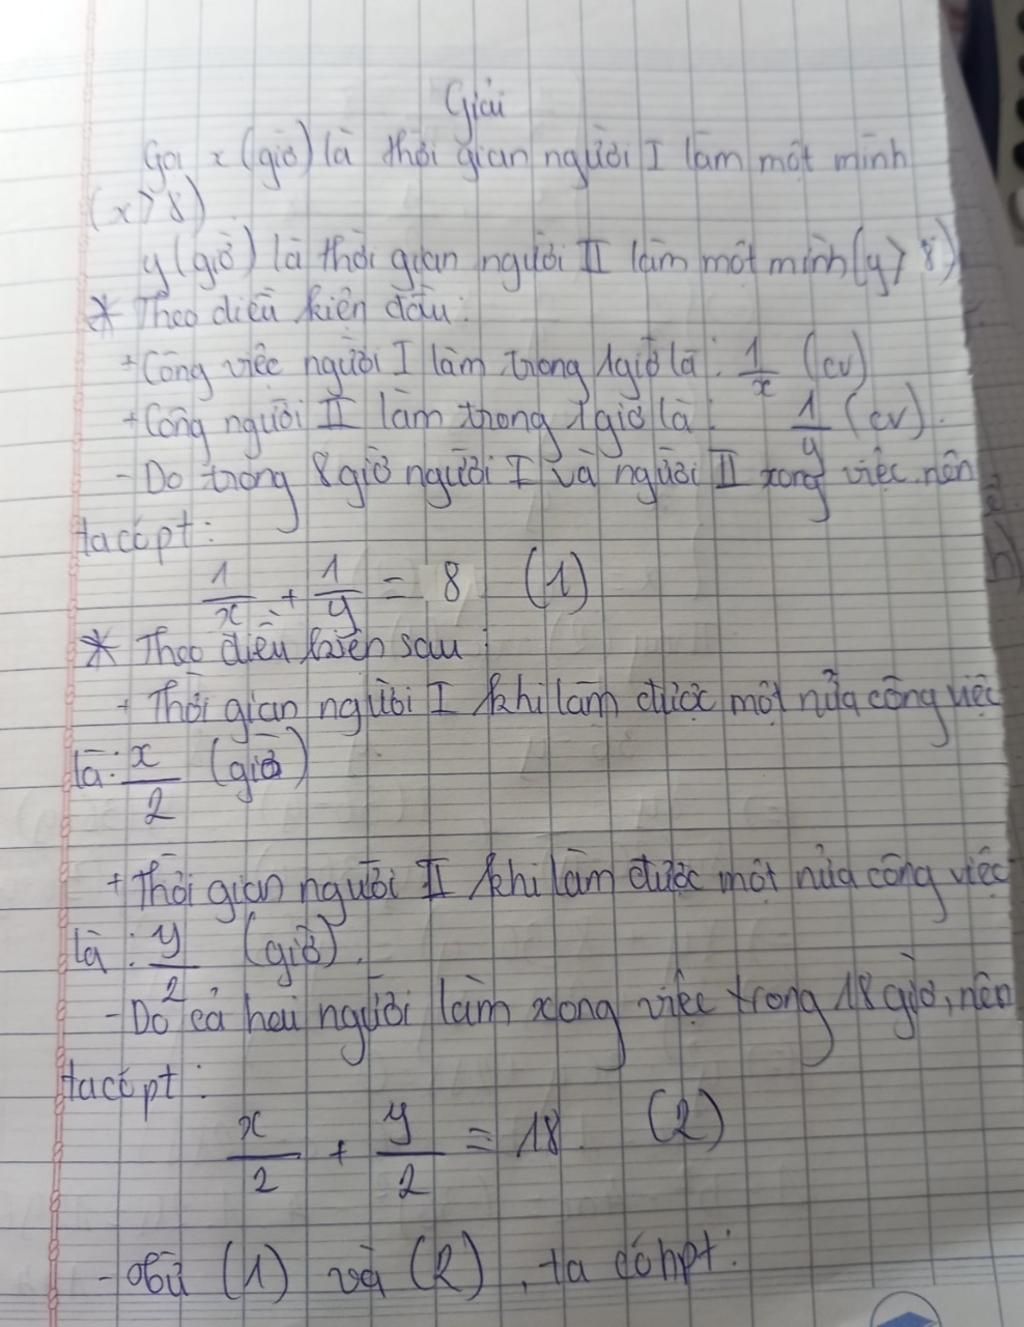 Giải
Gọi x (giờ) là thời gian người I làm một mình
(x > 8)
y (giờ) là thời gian người II làm một mình (y > 8)
* Theo điều kiện đầu:
+ Công việc người I làm trong 1 giờ là: 1/x (cv)
+ Công người II làm trong 1 giờ là: 1/y (cv).
- Do trong 8 giờ người I và người II xong việc nên
ta có pt:
1/x + 1/y = 8 (1)
* Theo điều kiện sau:
+ Thời gian người I khi làm được một nửa công việc
là: x/2 (giờ)
+ Thời gian người II khi làm được một nửa công việc
là: y/2 (giờ).
- Do cả hai người làm xong việc trong 18 giờ, nên
ta có pt:
x/2 + y/2 = 18. (2)
- (1) và (2), ta có hpt: